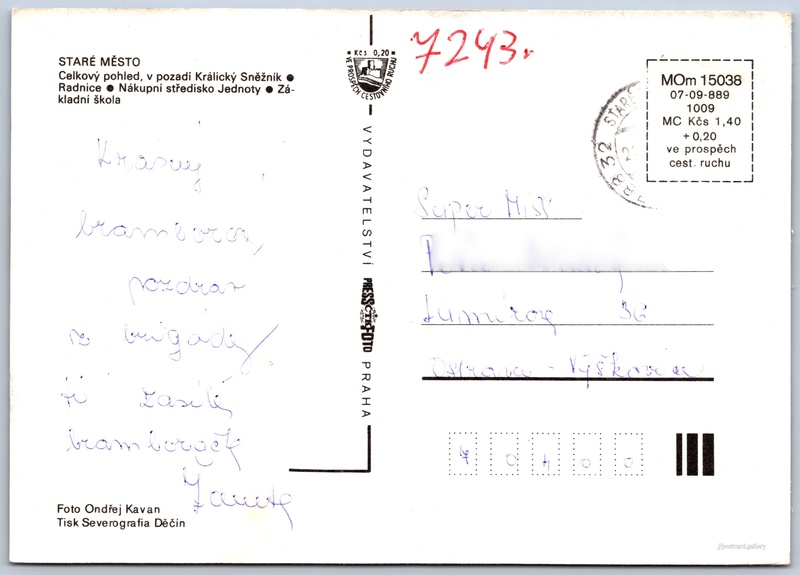 STARÉ MĚSTO
Celkový pohled, v pozadí Králický Sněžník ●
Radnice ● Nákupní středisko Jednoty ● Zá-
kladní škola
Krásný
bramborov
pozdrav
z brigády
ti zasílá
bramboráček
Foto Ondřej Kavan
Tisk Severografia Děčín
Kčs 0,20
VE PROSPĚCH CESTOVNÍHO RUCHU
VYDAVATELSTVÍ PRESSFOTO PRAHA
7243
788 32 STARÉ
MOm 15038
07-09-889
1009
MC Kčs 1,40
+ 0,20
ve prospěch
cest. ruchu
Super Miss
Lumírova 36
Ostrava - Výškovice
7 0 4 0 0
//postcard.gallery